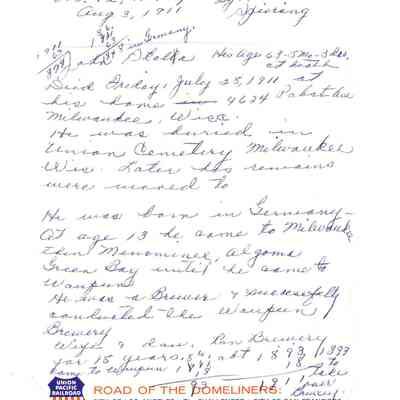 Aug 3, 1911
in Germany.
John Stolta His age 69-5 Mo-3 Das.
at death
Died Friday, July 28, 1911 at
his home 4624 Pabst Ave
Milwaukee, Wisc.
He was buried in
Union Cemetery Milwaukee
Wis. Later his remains
were moved to
He was born in Germany-
at age 13 he came to Milwaukee
then Menominee, Algoma
Green Bay until he came to
Waupun
He was a Brewer & successfully
conducted the Waupun
Brewery
Wife & dau. Ran Brewery
for 18 years, abt 1893 1893
came to Waupun 18 to
1911 take
93 over
Brewery.
UNION
PACIFIC
RAILROAD
ROAD OF THE DOMELINERS: